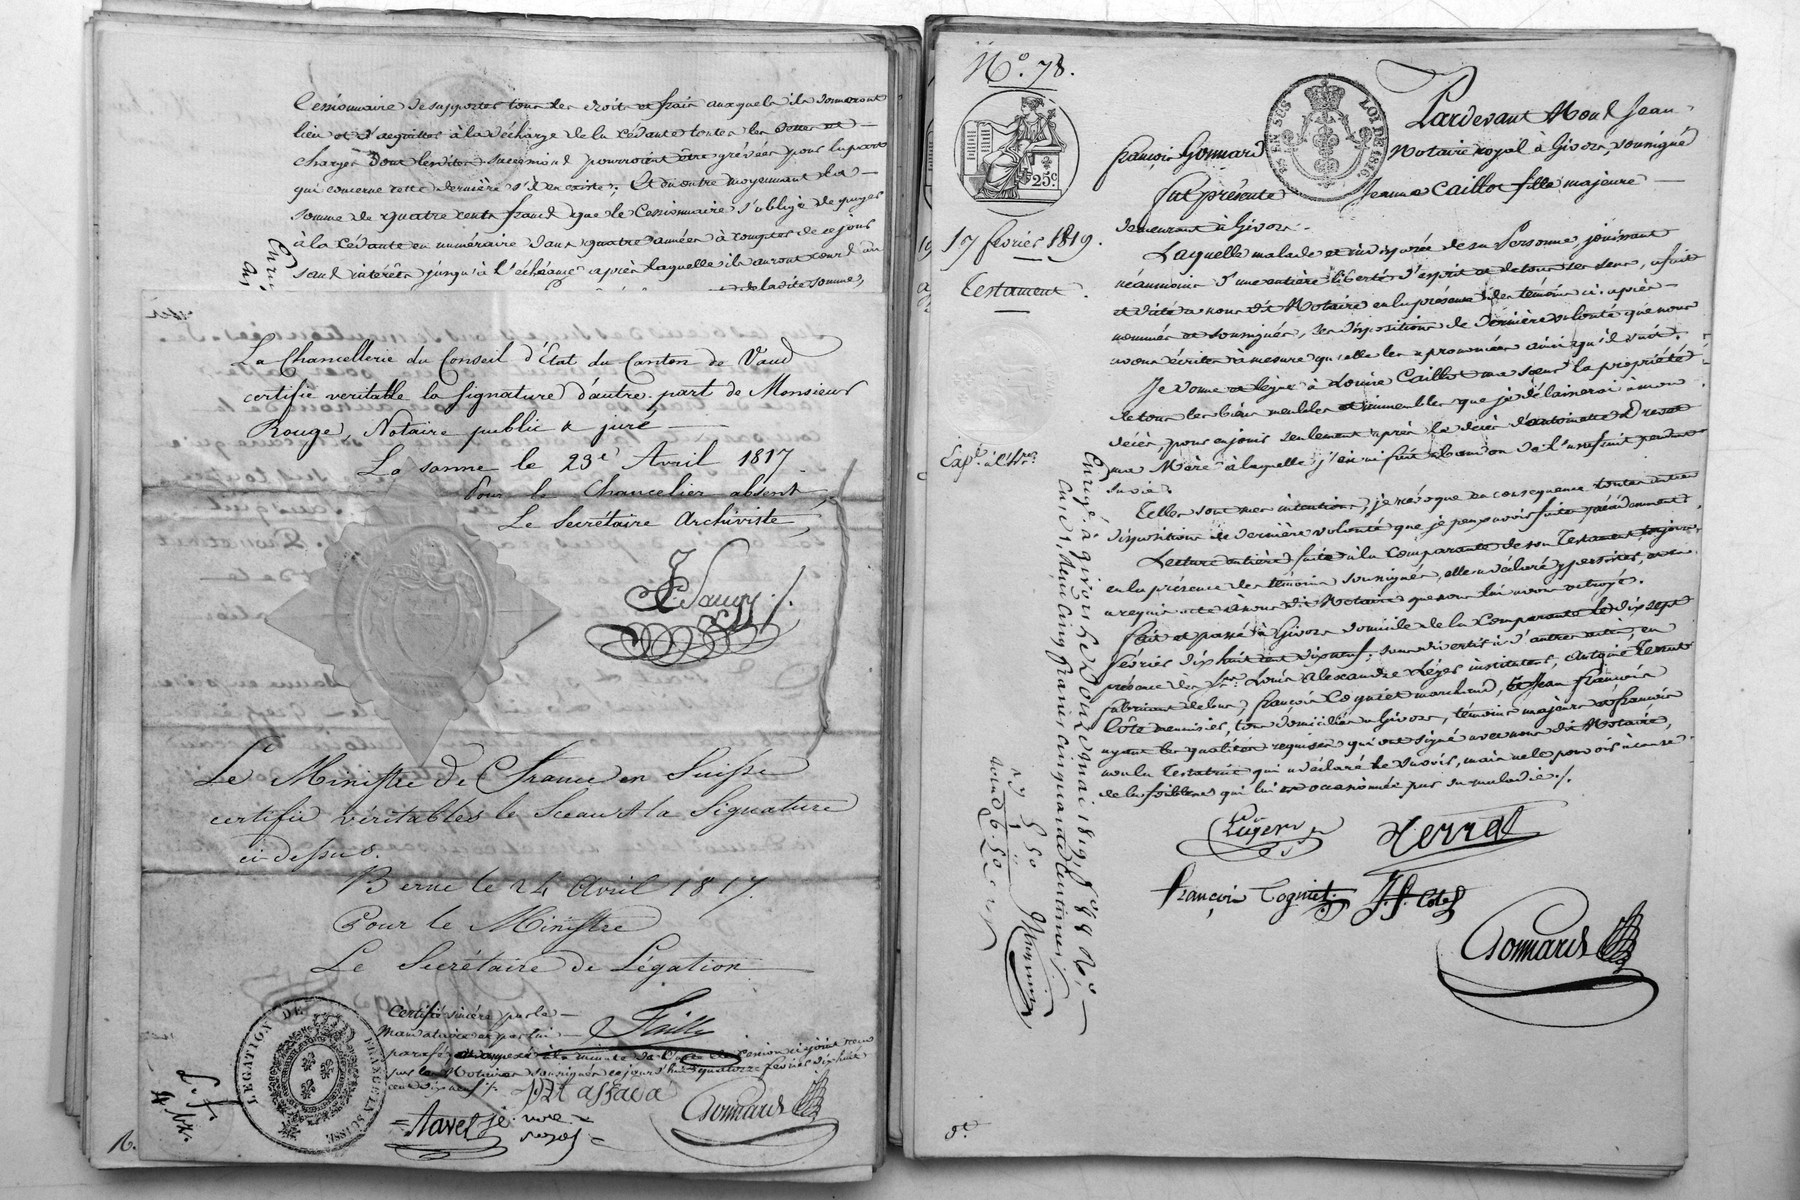 Cessionnaire de supporter tous les droits et frais auxquels ils donneront
lieu et d'acquitter à la décharge de la cédante toutes les dettes et
charges dont lesdites successions pourroient être grévées pour la part
qui concerne cette dernière s'il en existe; Et en outre moyennant la
somme de quatre cents francs que le Cessionnaire s'oblige de payer
à la cédante en numéraire dans quatre années à compter de ce jour
sans intérêts jusqu'à l'échéance après laquelle ils auront cours au
La Chancellerie du Conseil d'État du Canton de Vaud
certifie veritable la signature d'autre part de Monsieur
Rouge, Notaire public & juré
Lausanne le 23e Avril 1817.
Pour le Chancelier absent,
Le Secrétaire Archiviste,
Le Ministre de France en Suisse
certifie véritables le Sceau & la Signature
ci-dessus.
Berne le 24 Avril 1817.
Pour le Ministre
Le Secrétaire de Légation
LEGATION DE FRANCE EN SUISSE
Certifié sincère par le
mandataire
parafé et annexé à la minute de l'acte de cession ci joint reçu
par les Notaires soussignés ce jour d'hui quatorze février dix huit
cent dix neuf ./.
Favel
Gonnard
No. 78.
25c
EN SUS
LOI DE 1816
17 février 1819.
Testament
Pardevant Mous Jean
françois Gonnard Notaire royal à Givors, soussigné
fut présente Jeanne Caillot fille majeure
demeurant à Givors.
Laquelle malade et indisposée de sa Personne, jouissant
néanmoins d'une entière liberté d'esprit et de tous ses sens, a fait
et dicté à nous dit Notaire en la présence des témoins ci-après
nommés et soussignés, ses dispositions de dernière volonté que nous
avons écrites à mesure qu'elle les a prononcées ainsi qu'il suit.
Je donne et lègue à Louise Caillot ma sœur la propriété
de tous les biens meubles et immeubles que je délaisserai à mon
décès, pour en jouir seulement après le décès d'antoinette
ma Mère à laquelle j'en ai fait abandon de l'usufruit pendant
sa vie.
Telles sont mes intentions, je révoque en consequence toutes autres
dispositions de dernière volonté que je peux avoir faites précédemment
Lecture entière faite à la Comparante de son Testament toujours
en la présence des témoins soussignés, elle a déclaré y persister, et en
a requis acte à nous dit Notaire que nous lui avons octroyé.
fait et passé à Givors domicile de la Comparante le dix sept
février dix huit cent dix neuf, sans divertir à d'autres actes, en
présence des Srs. Louis Alexandre Léger instituteur, Antoine Terrat
fabricant de bas, françois Cognet marchand, & Jean françois
Côte menuisier, tous domiciliés à Givors, témoins majeurs & françois
ayant les qualités requises qui ont signé avec nous dit Notaire,
non la Testatrice qui a déclaré le savoir, mais ne le pouvoir à cause
de la foiblesse qui lui est occasionnée par sa maladie ./.
Enregé. à Givors le Douze mai 1819, fo 88
Reçu cinq francs cinquante centimes
Terrat
françois Cognet
J. f. Cote
Gonnard